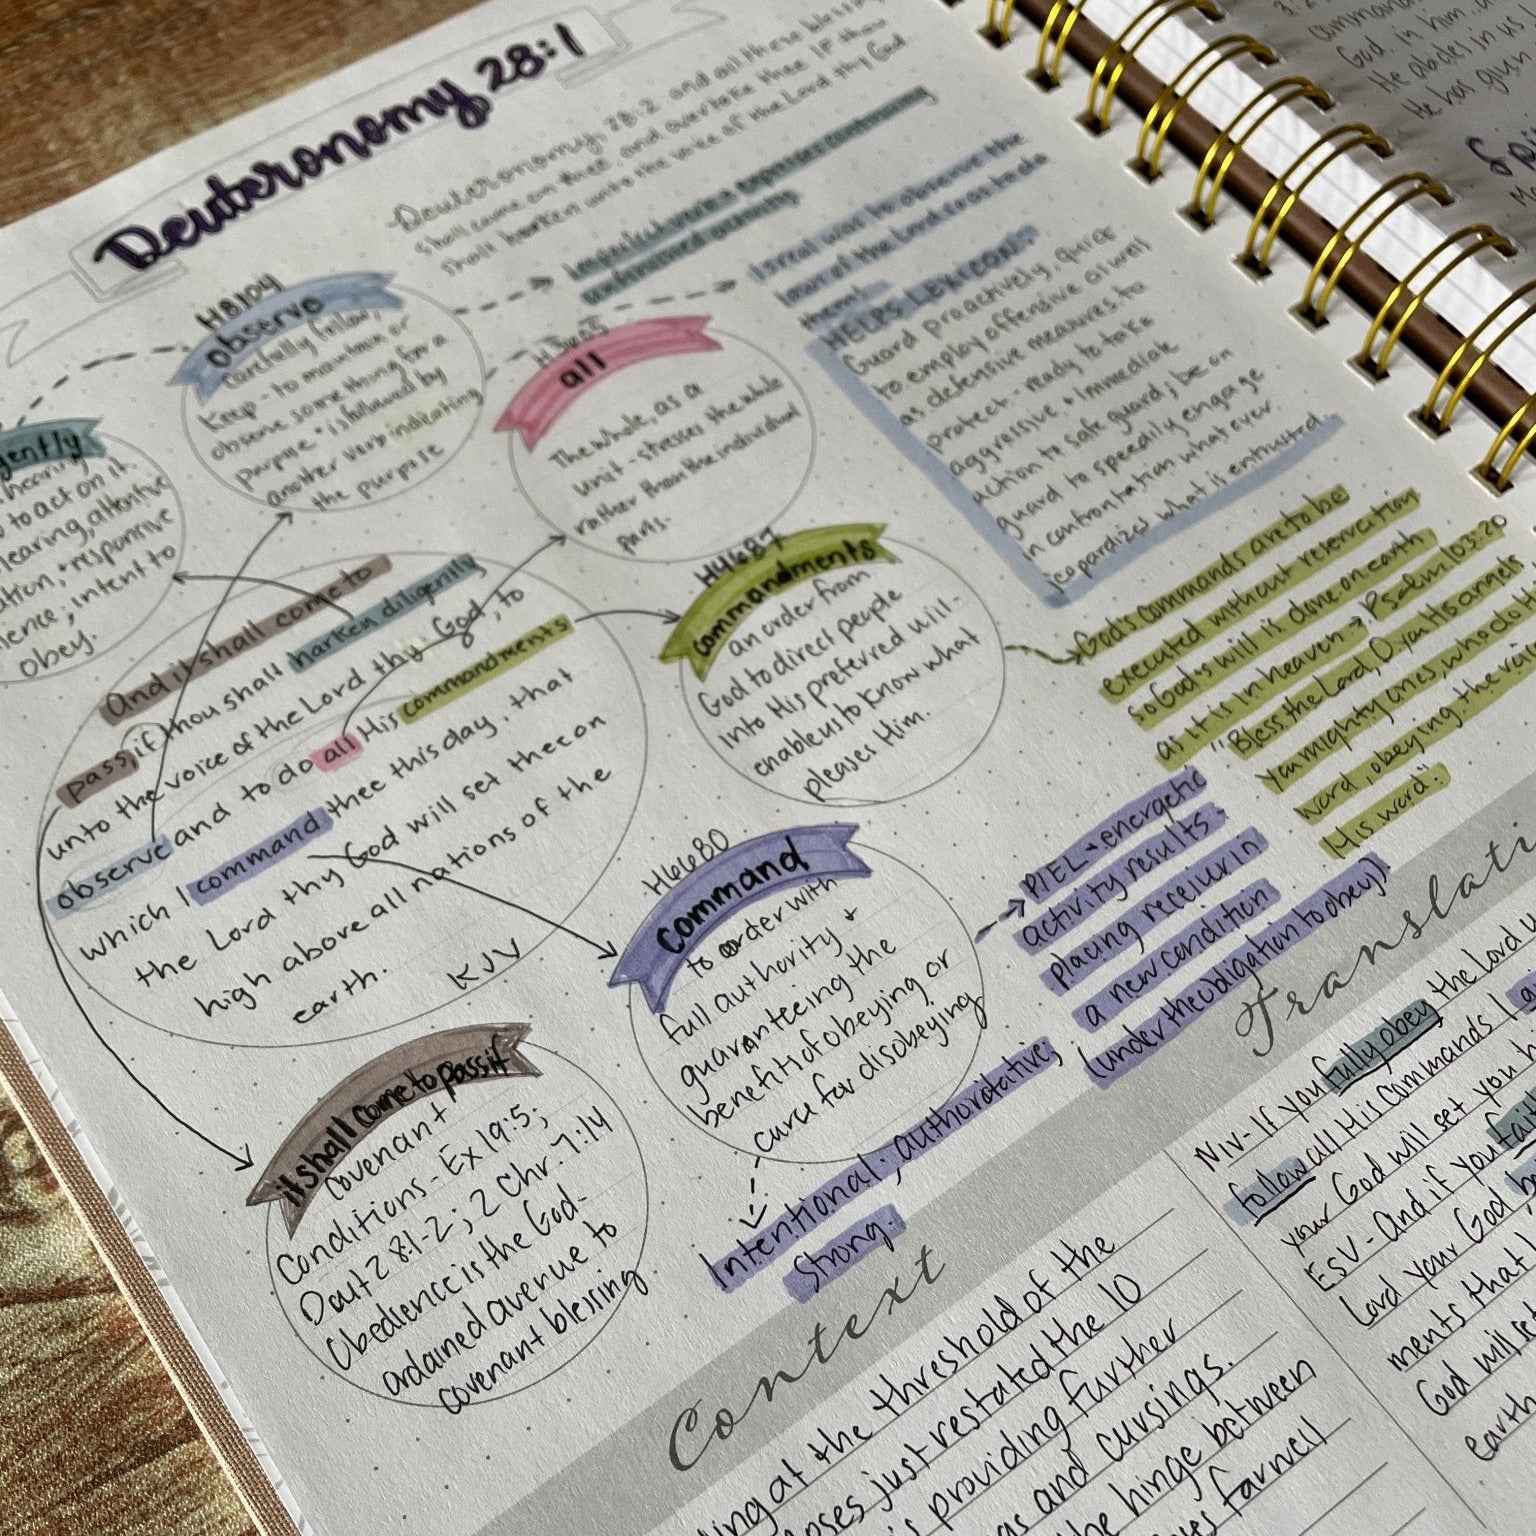 Deuteronomy 28:1
Deuteronomy 28:2 and all these blessings
shall come on thee and overtake thee IF thou
shalt harken unto the voice of the Lord thy God
Imperfect verb + expresses continuing
unfinished
Israel was to observe the
law of the Lord so as to do
them!
HELPS LEXICON:
Guard proactively, quick
to employ offensive as well
as defensive measures to
protect - ready to take
aggressive, + immediate
action to safe guard; be on
guard to speedily engage
in confrontation what ever
jeopardizes what is entrusted.
H8104
observe
Carefully follow,
Keep - to maintain or
observe something for a
purpose + is followed by
another verb indicating
the purpose
all
The whole, as a
unit - stresses the whole
rather than the individual
parts.
gently
hearing
to act on it.
learing, attentive
responsive
intent to
obey.
And it shall come to
pass, if thou shall harken diligently
unto the voice of the Lord thy God, to
observe and to do all His commandments
which I command thee this day, that
the Lord thy God will set thee on
high above all nations of the
earth. KJV
H4687
commandments
an order from
God to direct people
into His preferred will -
enable us to know what
pleases Him.
God's commands are to be
executed without reservation
so God's will is done on earth
as it is in heaven → Psalm 103:20
"Bless the Lord, O you His angels
you mighty ones, who do His
word, obeying the voice
His word".
H6680
command
to order with
full authority +
guaranteeing the
benefits of obeying or
curse for disobeying
PIEL + energetic
activity results
placing receiver in
a new condition
(under the obligation to obey)
Intentional; authoritative;
strong.
it shall come to pass if
Covenant
Conditions - Ex 19:5;
Daut 28:1-2; 2 Chr. 7:14
Obedience is the God-
ordained avenue to
covenant blessing.
Context
at the threshold of the
just restated the 10
providing further
and cursings.
the hinge between
farwell
Translati
NIV - If you fully obey the Lord
follow all His Commands I
your God will set you h
ESV - And if you fai
Lord your God
ments that
God will se
earth
command
God. is him
He abides in us
He has given